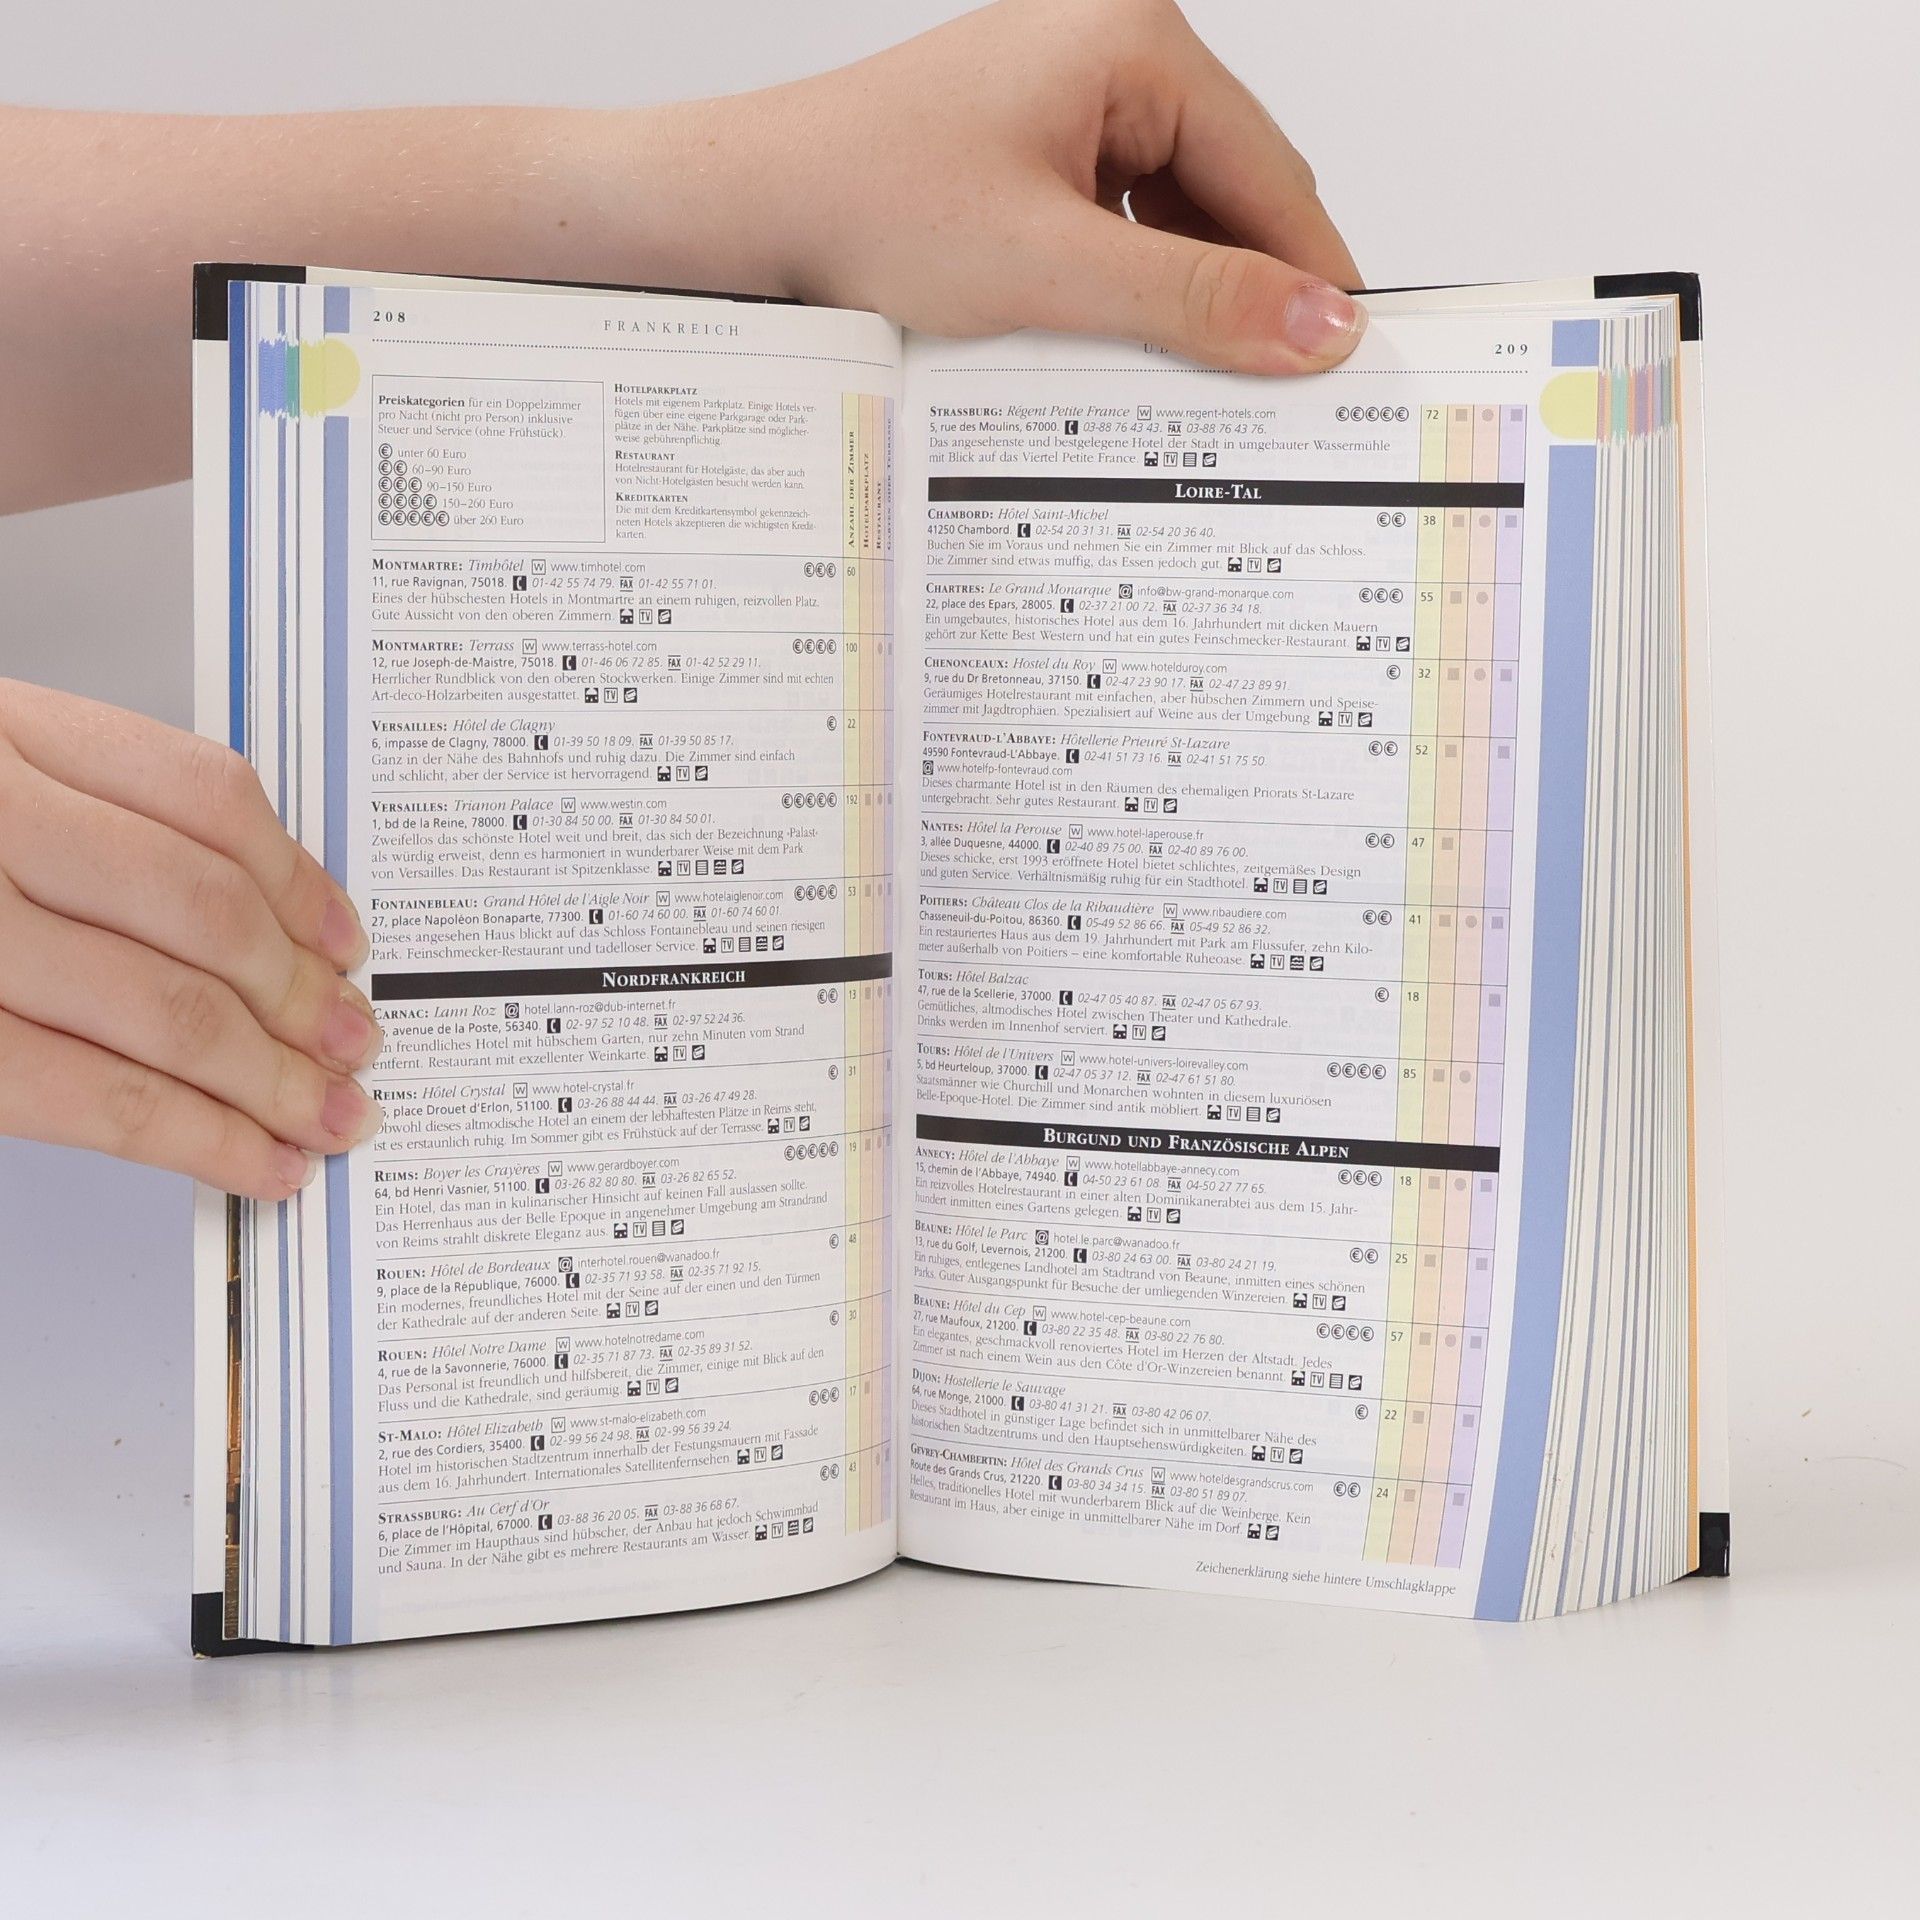 208
FRANKREICH
Preiskategorien für ein Doppelzimmer
pro Nacht (nicht pro Person) inklusive
Steuer und Service (ohne Frühstück).
€ unter 60 Euro
€€ 60–90 Euro
€€€ 90–150 Euro
€€€€ 150–260 Euro
€€€€€ über 260 Euro
HOTELPARKPLATZ
Hotels mit eigenem Parkplatz. Einige Hotels ver-
fügen über eine eigene Parkgarage oder Park-
plätze in der Nähe. Parkplätze sind möglicher-
weise gebührenpflichtig.
RESTAURANT
Hotelrestaurant für Hotelgäste, das aber auch
von Nicht-Hotelgästen besucht werden kann.
KREDITKARTEN
Die mit dem Kreditkartensymbol gekennzeich-
neten Hotels akzeptieren die wichtigsten Kredit-
karten.
ANZAHL DER ZIMMER
HOTELPARKPLATZ
RESTAURANT
GARTEN ODER TERRASSE
MONTMARTRE: Timhôtel W www.timhotel.com €€€ 60
11, rue Ravignan, 75018. 01-42 55 74 79. FAX 01-42 55 71 01.
Eines der hübschesten Hotels in Montmartre an einem ruhigen, reizvollen Platz.
Gute Aussicht von den oberen Zimmern. TV
MONTMARTRE: Terrass W www.terrass-hotel.com €€€€ 100
12, rue Joseph-de-Maistre, 75018. 01-46 06 72 85. FAX 01-42 52 29 11.
Herrlicher Rundblick von den oberen Stockwerken. Einige Zimmer sind mit echten
Art-deco-Holzarbeiten ausgestattet. TV
VERSAILLES: Hôtel de Clagny € 22
6, impasse de Clagny, 78000. 01-39 50 18 09. FAX 01-39 50 85 17.
Ganz in der Nähe des Bahnhofs und ruhig dazu. Die Zimmer sind einfach
und schlicht, aber der Service ist hervorragend. TV
VERSAILLES: Trianon Palace W www.westin.com €€€€€ 192
1, bd de la Reine, 78000. 01-30 84 50 00. FAX 01-30 84 50 01.
Zweifellos das schönste Hotel weit und breit, das sich der Bezeichnung ›Palast‹
als würdig erweist, denn es harmoniert in wunderbarer Weise mit dem Park
von Versailles. Das Restaurant ist Spitzenklasse. TV
FONTAINEBLEAU: Grand Hôtel de l'Aigle Noir W www.hotelaiglenoir.com €€€€ 53
27, place Napoléon Bonaparte, 77300. 01-60 74 60 00. FAX 01-60 74 60 01.
Dieses angesehen Haus blickt auf das Schloss Fontainebleau und seinen riesigen
Park. Feinschmecker-Restaurant und tadelloser Service. TV
NORDFRANKREICH
CARNAC: Lann Roz @ hotel.lann-roz@dub-internet.fr €€ 13
avenue de la Poste, 56340. 02-97 52 10 48. FAX 02-97 52 24 36.
freundliches Hotel mit hübschem Garten, nur zehn Minuten vom Strand
entfernt. Restaurant mit exzellenter Weinkarte. TV
REIMS: Hôtel Crystal W www.hotel-crystal.fr € 31
place Drouet d'Erlon, 51100. 03-26 88 44 44. FAX 03-26 47 49 28.
Obwohl dieses altmodische Hotel an einem der lebhaftesten Plätze in Reims steht,
ist es erstaunlich ruhig. Im Sommer gibt es Frühstück auf der Terrasse. TV
REIMS: Boyer les Crayères W www.gerardboyer.com €€€€€ 19
64, bd Henri Vasnier, 51100. 03-26 82 80 80. FAX 03-26 82 65 52.
Ein Hotel, das man in kulinarischer Hinsicht auf keinen Fall auslassen sollte.
Das Herrenhaus aus der Belle Epoque in angenehmer Umgebung am Strandrand
von Reims strahlt diskrete Eleganz aus. TV
ROUEN: Hôtel de Bordeaux @ interhotel.rouen@wanadoo.fr € 48
9, place de la République, 76000. 02-35 71 93 58. FAX 02-35 71 92 15.
Ein modernes, freundliches Hotel mit der Seine auf der einen und den Türmen
der Kathedrale auf der anderen Seite. TV
ROUEN: Hôtel Notre Dame W www.hotelnotredame.com € 30
4, rue de la Savonnerie, 76000. 02-35 71 87 73. FAX 02-35 89 31 52.
Das Personal ist freundlich und hilfsbereit, die Zimmer, einige mit Blick auf den
Fluss und die Kathedrale, sind geräumig. TV
ST-MALO: Hôtel Elizabeth W www.st-malo-elizabeth.com €€€ 17
2, rue des Cordiers, 35400. 02-99 56 24 98. FAX 02-99 56 39 24.
Hotel im historischen Stadtzentrum innerhalb der Festungsmauern mit Fassade
aus dem 16. Jahrhundert. Internationales Satellitenfernsehen. TV
STRASSBURG: Au Cerf d'Or €€ 43
6, place de l'Hôpital, 67000. 03-88 36 20 05. FAX 03-88 36 68 67.
Die Zimmer im Haupthaus sind hübscher, der Anbau hat jedoch Schwimmbad
und Sauna. In der Nähe gibt es mehrere Restaurants am Wasser. TV
209
STRASSBURG: Régent Petite France W www.regent-hotels.com €€€€€ 72
5, rue des Moulins, 67000. 03-88 76 43 43. FAX 03-88 76 43 76.
Das angesehenste und bestgelegene Hotel der Stadt in umgebauter Wassermühle
mit Blick auf das Viertel Petite France. TV
LOIRE-TAL
CHAMBORD: Hôtel Saint-Michel €€ 38
41250 Chambord. 02-54 20 31 31. FAX 02-54 20 36 40.
Buchen Sie im Voraus und nehmen Sie ein Zimmer mit Blick auf das Schloss.
Die Zimmer sind etwas muffig, das Essen jedoch gut. TV
CHARTRES: Le Grand Monarque @ info@bw-grand-monarque.com €€€ 55
22, place des Epars, 28005. 02-37 21 00 72. FAX 02-37 36 34 18.
Ein umgebautes, historisches Hotel aus dem 16. Jahrhundert mit dicken Mauern
gehört zur Kette Best Western und hat ein gutes Feinschmecker-Restaurant. TV
CHENONCEAUX: Hostel du Roy W www.hotelduroy.com € 32
9, rue du Dr Bretonneau, 37150. 02-47 23 90 17. FAX 02-47 23 89 91.
Geräumiges Hotelrestaurant mit einfachen, aber hübschen Zimmern und Speise-
zimmer mit Jagdtrophäen. Spezialisiert auf Weine aus der Umgebung. TV
FONTEVRAUD-L'ABBAYE: Hôtellerie Prieuré St-Lazare €€ 52
49590 Fontevraud-L'Abbaye. 02-41 51 73 16. FAX 02-41 51 75 50.
@ www.hotelfp-fontevraud.com
Dieses charmante Hotel ist in den Räumen des ehemaligen Priorats St-Lazare
untergebracht. Sehr gutes Restaurant. TV
NANTES: Hôtel la Perouse W www.hotel-laperouse.fr €€ 47
3, allée Duquesne, 44000. 02-40 89 75 00. FAX 02-40 89 76 00.
Dieses schicke, erst 1993 eröffnete Hotel bietet schlichtes, zeitgemäßes Design
und guten Service. Verhältnismäßig ruhig für ein Stadthotel. TV
POITIERS: Château Clos de la Ribaudière W www.ribaudiere.com €€ 41
Chasseneuil-du-Poitou, 86360. 05-49 52 86 66. FAX 05-49 52 86 32.
Ein restauriertes Haus aus dem 19. Jahrhundert mit Park am Flussufer, zehn Kilo-
meter außerhalb von Poitiers – eine komfortable Ruheoase. TV
TOURS: Hôtel Balzac € 18
47, rue de la Scellerie, 37000. 02-47 05 40 87. FAX 02-47 05 67 93.
Gemütliches, altmodisches Hotel zwischen Theater und Kathedrale.
Drinks werden im Innenhof serviert. TV
TOURS: Hôtel de l'Univers W www.hotel-univers-loirevalley.com €€€€ 85
5, bd Heurteloup, 37000. 02-47 05 37 12. FAX 02-47 61 51 80.
Staatsmänner wie Churchill und Monarchen wohnten in diesem luxuriösen
Belle-Epoque-Hotel. Die Zimmer sind antik möbliert. TV
BURGUND UND FRANZÖSISCHE ALPEN
ANNECY: Hôtel de l'Abbaye W www.hotellabbaye-annecy.com €€€ 18
15, chemin de l'Abbaye, 74940. 04-50 23 61 08. FAX 04-50 27 77 65.
Ein reizvolles Hotelrestaurant in einer alten Dominikanerabtei aus dem 15. Jahr-
hundert inmitten eines Gartens gelegen. TV
BEAUNE: Hôtel le Parc @ hotel.le.parc@wanadoo.fr €€ 25
13, rue du Golf, Levernois, 21200. 03-80 24 63 00. FAX 03-80 24 21 19.
Ein ruhiges, entlegenes Landhotel am Stadtrand von Beaune, inmitten eines schönen
Parks. Guter Ausgangspunkt für Besuche der umliegenden Winzereien. TV
BEAUNE: Hôtel du Cep W www.hotel-cep-beaune.com €€€€ 57
27, rue Maufoux, 21200. 03-80 22 35 48. FAX 03-80 22 76 80.
Ein elegantes, geschmackvoll renoviertes Hotel im Herzen der Altstadt. Jedes
Zimmer ist nach einem Wein aus den Côte d'Or-Winzereien benannt. TV
DIJON: Hostellerie le Sauvage € 22
64, rue Monge, 21000. 03-80 41 31 21. FAX 03-80 42 06 07.
Dieses Stadthotel in günstiger Lage befindet sich in unmittelbarer Nähe des
historischen Stadtzentrums und den Hauptsehenswürdigkeiten. TV
GEVREY-CHAMBERTIN: Hôtel des Grands Crus W www.hoteldesgrandscrus.com €€ 24
Route des Grands Crus, 21220. 03-80 34 34 15. FAX 03-80 51 89 07.
Helles, traditionelles Hotel mit wunderbarem Blick auf die Weinberge. Kein
Restaurant im Haus, aber einige in unmittelbarer Nähe im Dorf.
Zeichenerklärung siehe hintere Umschlagklappe